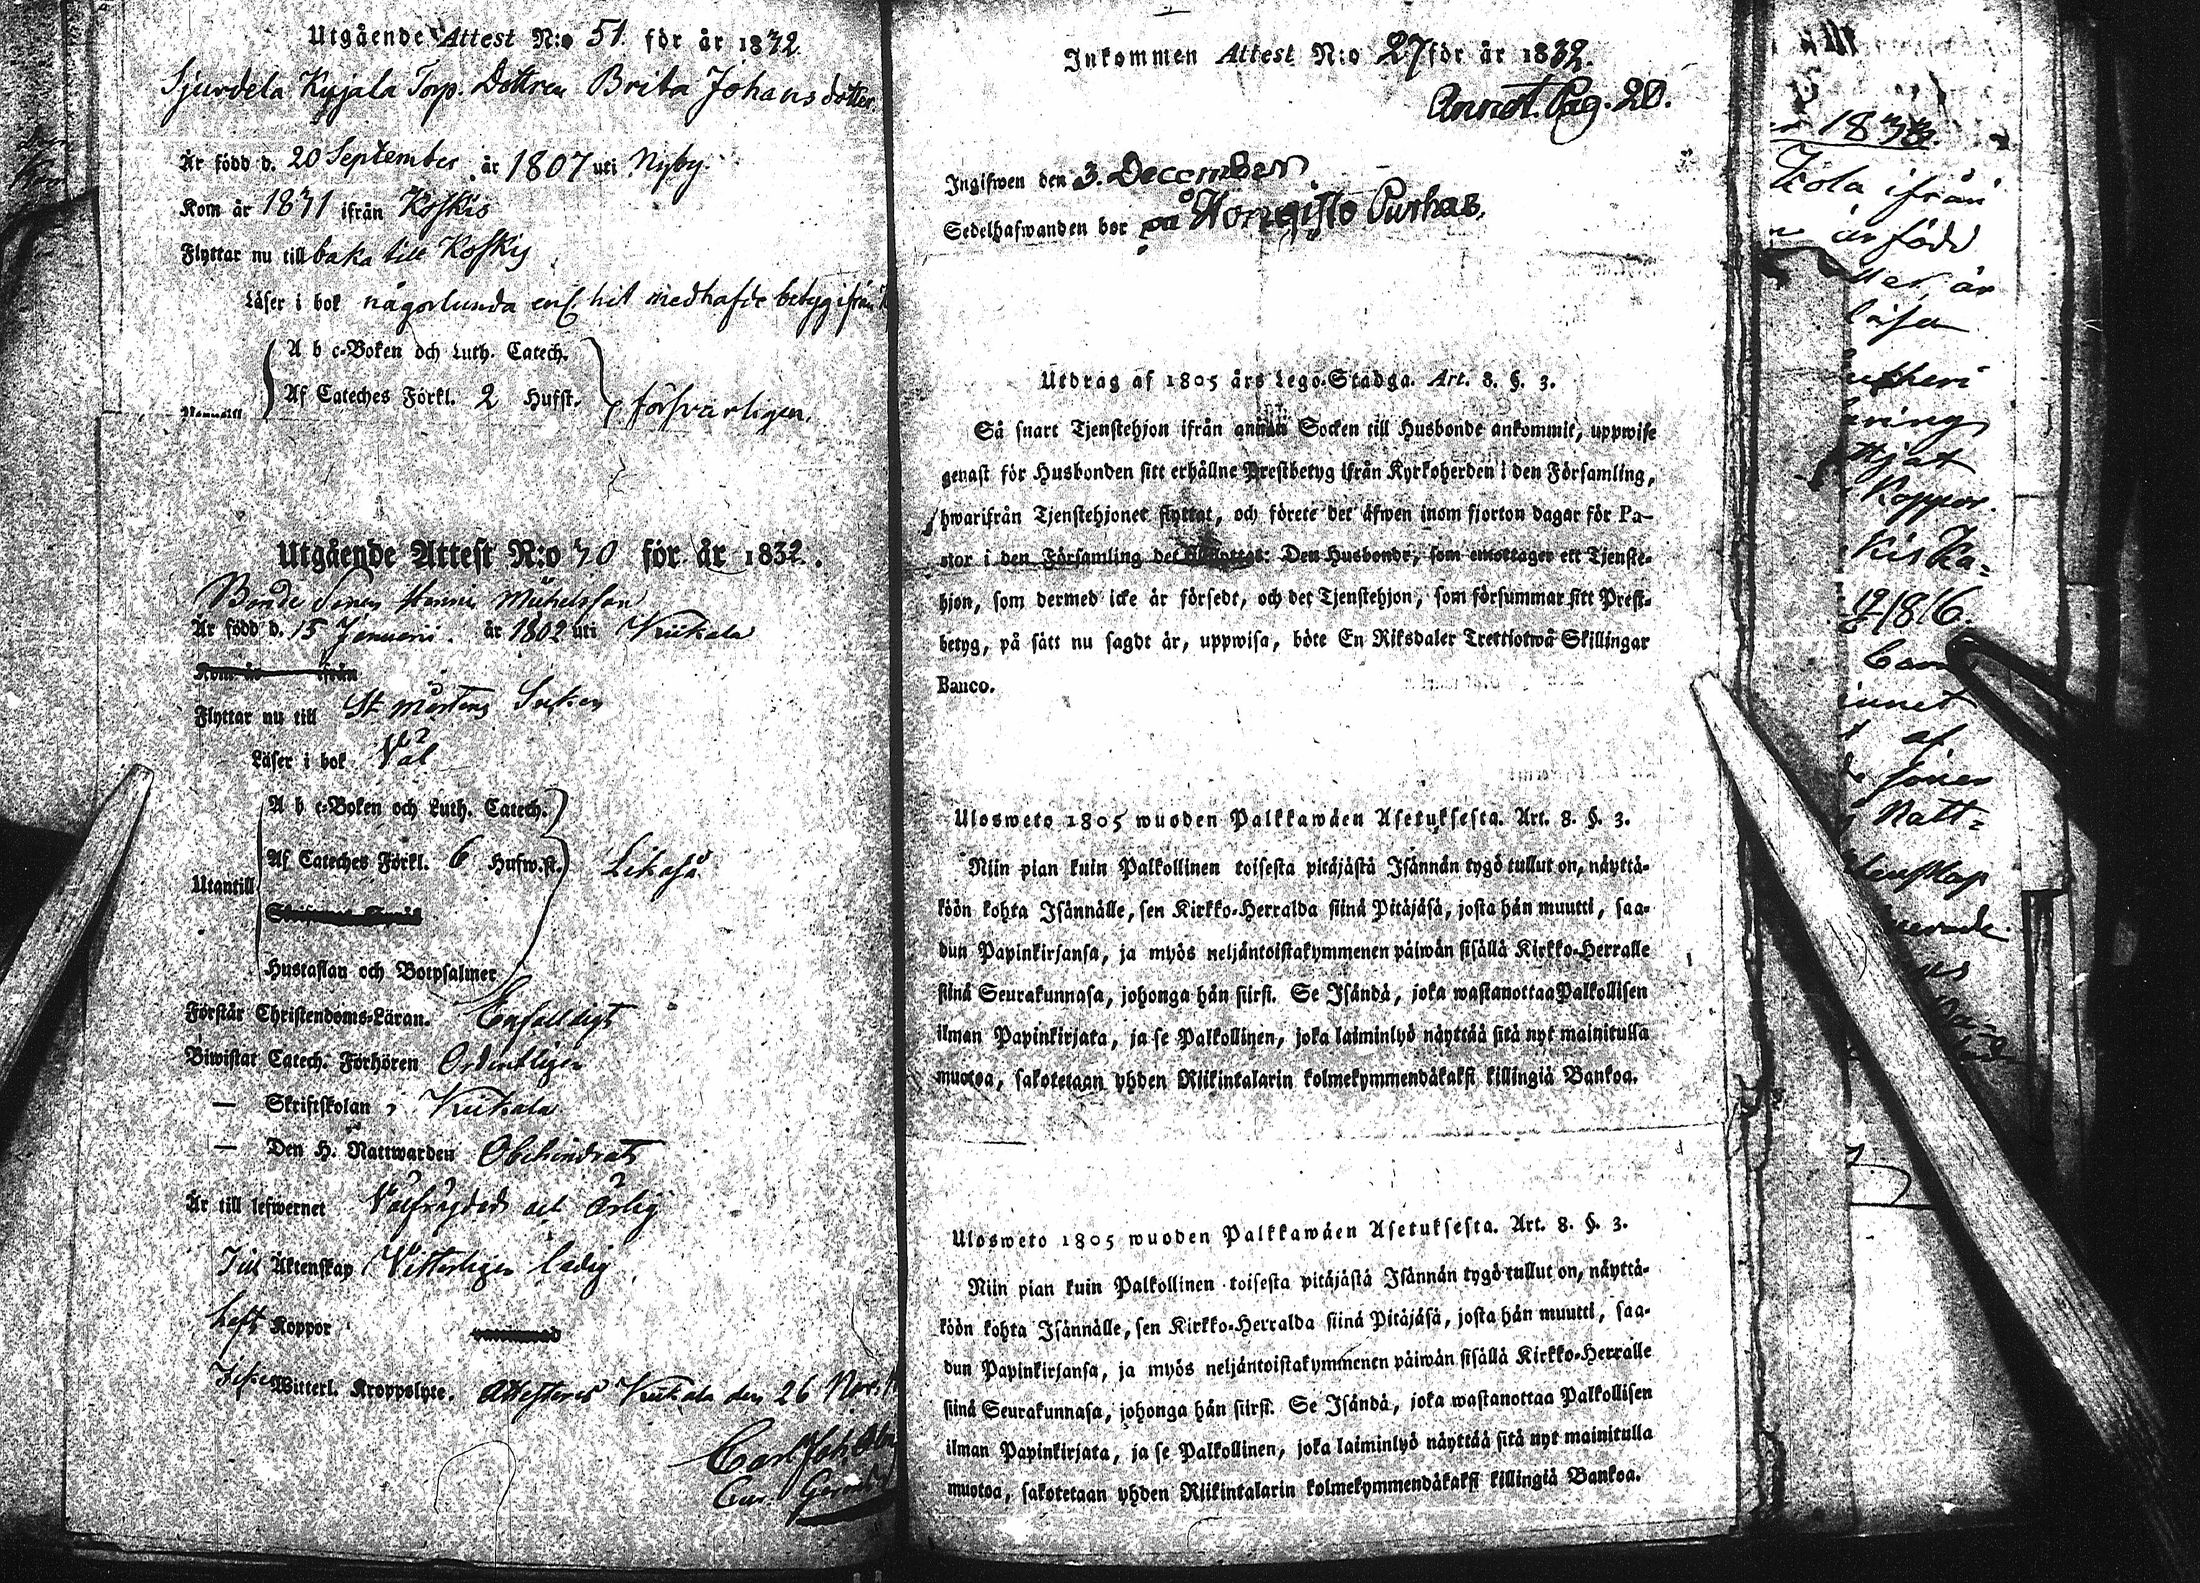 Utgående Attest N:o 51 för år 1832.
Sjundela Kyjala Torp. Dottren Brita Johansdotter
Är född d. 20 September år 1807 uti Nyby.
Kom år 1831 ifrån Koskis
Flyttar nu till baka till Koskis
Läser i bok någorlunda enl. hit medhafde betyg ifrån
A b c-Boken och Luth. Catech.
Af Cateches Förkl. 2 Hufst. försvarligen.
Utgående Attest N:o 70 för år 1832.
Bonde Sonen Henric Michelsson
Är född d. 15 Januarii. år 1802 uti Kiikala
Kom år ifrån
Flyttar nu till St Mårtens Socken
Läser i bok Väl
A b c-Boken och Luth. Catech.
Af Cateches Förkl. 6 Hufw.st. Likaså
Utantill
Hustaflan och Botpsalmer
Förstår Christendoms-Läran. Enfaldigt
Biwistat Catech. Förhören Ordentligen
— Skriftskolan i Kiikala
— Den H. Nattwarden Obehindrat
Är till lefwernet Välfrägdad och Ärlig
Till Äktenskap Vitterligen ledig
Haft Koppor
Icke Witterl. Kroppslyte. Attesteras Kiikala den 26 Nov.
Carl Joh.
Inkommen Attest N:o 27 för år 1832.
Annot. Pag. 20.
Ingifwen den 3. December
Sedelhafwanden bor på Hongisto Purhas.
Utdrag af 1805 års Lego-Stadga. Art. 8. §. 3.
Så snart Tjenstehjon ifrån annan Socken till Husbonde ankommit, uppwise
genast för Husbonden sitt erhållne Prestbetyg ifrån Kyrkoherden i den Församling,
hwarifrån Tjenstehjonet flyttat, och förete det äfwen inom fjorton dagar för Pa-
stor i den Församling det : Den Husbonde, som emottager ett Tjenste-
hjon, som dermed icke är försedt, och det Tjenstehjon, som försummar sitt Prest-
betyg, på sätt nu sagdt är, uppwisa, böte En Riksdaler Trettiotwå Skillingar
Banco.
Ulosweto 1805 wuoden Palkkawäen Asetuksesta. Art. 8. §. 3.
Niin pian kuin Palkollinen toisesta pitäjästä Isännän tygö tullut on, näyttä-
köön kohta Isännälle, sen Kirkko-Herralda siinä Pitäjäsä, josta hän muutti, saa-
dun Papinkirjansa, ja myös neljäntoistakymmenen päiwän sisällä Kirkko-Herralle
siinä Seurakunnasa, johonga hän siirsi. Se Isändä, joka wastanottaa Palkollisen
ilman Papinkirjata, ja se Palkollinen, joka laiminlyö näyttää sitä nyt mainitulla
muotoa, sakotetaan yhden Riikintalarin kolmekymmendäkaksi killingiä Bankoa.
Ulosweto 1805 wuoden Palkkawäen Asetuksesta. Art. 8. §. 3.
Niin pian kuin Palkollinen toisesta pitäjästä Isännän tygö tullut on, näyttä-
köön kohta Isännälle, sen Kirkko-Herralda siinä Pitäjäsä, josta hän muutti, saa-
dun Papinkirjansa, ja myös neljäntoistakymmenen päiwän sisällä Kirkko-Herralle
siinä Seurakunnasa, johonga hän siirsi. Se Isändä, joka wastanottaa Palkollisen
ilman Papinkirjata, ja se Palkollinen, joka laiminlyö näyttää sitä nyt mainitulla
muotoa, sakotetaan yhden Riikintalarin kolmekymmendäkaksi killingiä Bankoa.
ifrån
är född
läsa
Koppor.
1816.
af
Natt-